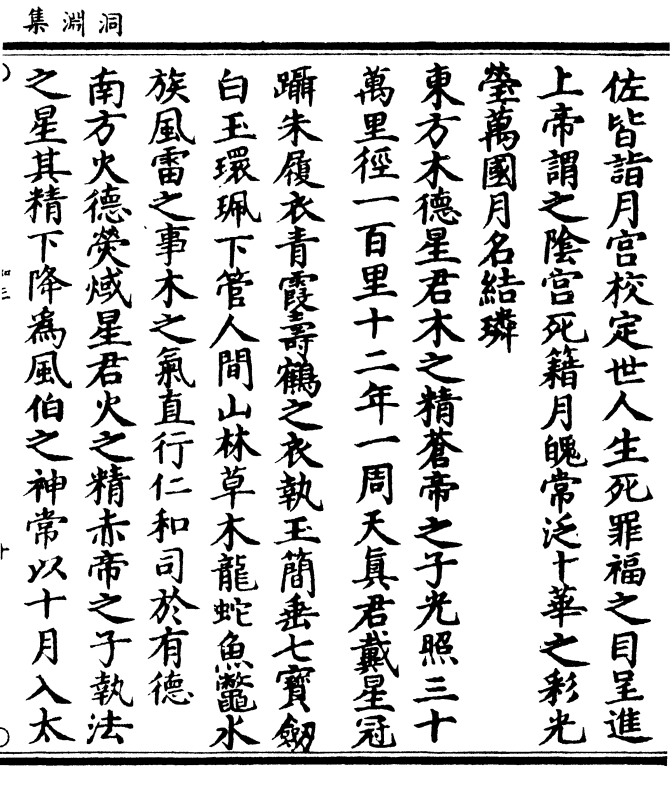 洞淵集
佐皆詣月宮校定世人生死罪福之目呈進
上帝謂之陰宮死籍月魄常泛十華之彩光
瑩萬國月名結璘
東方木德星君木之精蒼帝之子光照三十
萬里徑一百里十二年一周天真君戴星冠
躡朱履衣青霞壽鶴之衣執玉簡垂七寶劒
白玉環珮下管人間山林草木龍蛇魚鼈水
族風雷之事木之氣直行仁和司於有德
南方火德熒惑星君火之精赤帝之子執法
之星其精下降為風伯之神常以十月入太